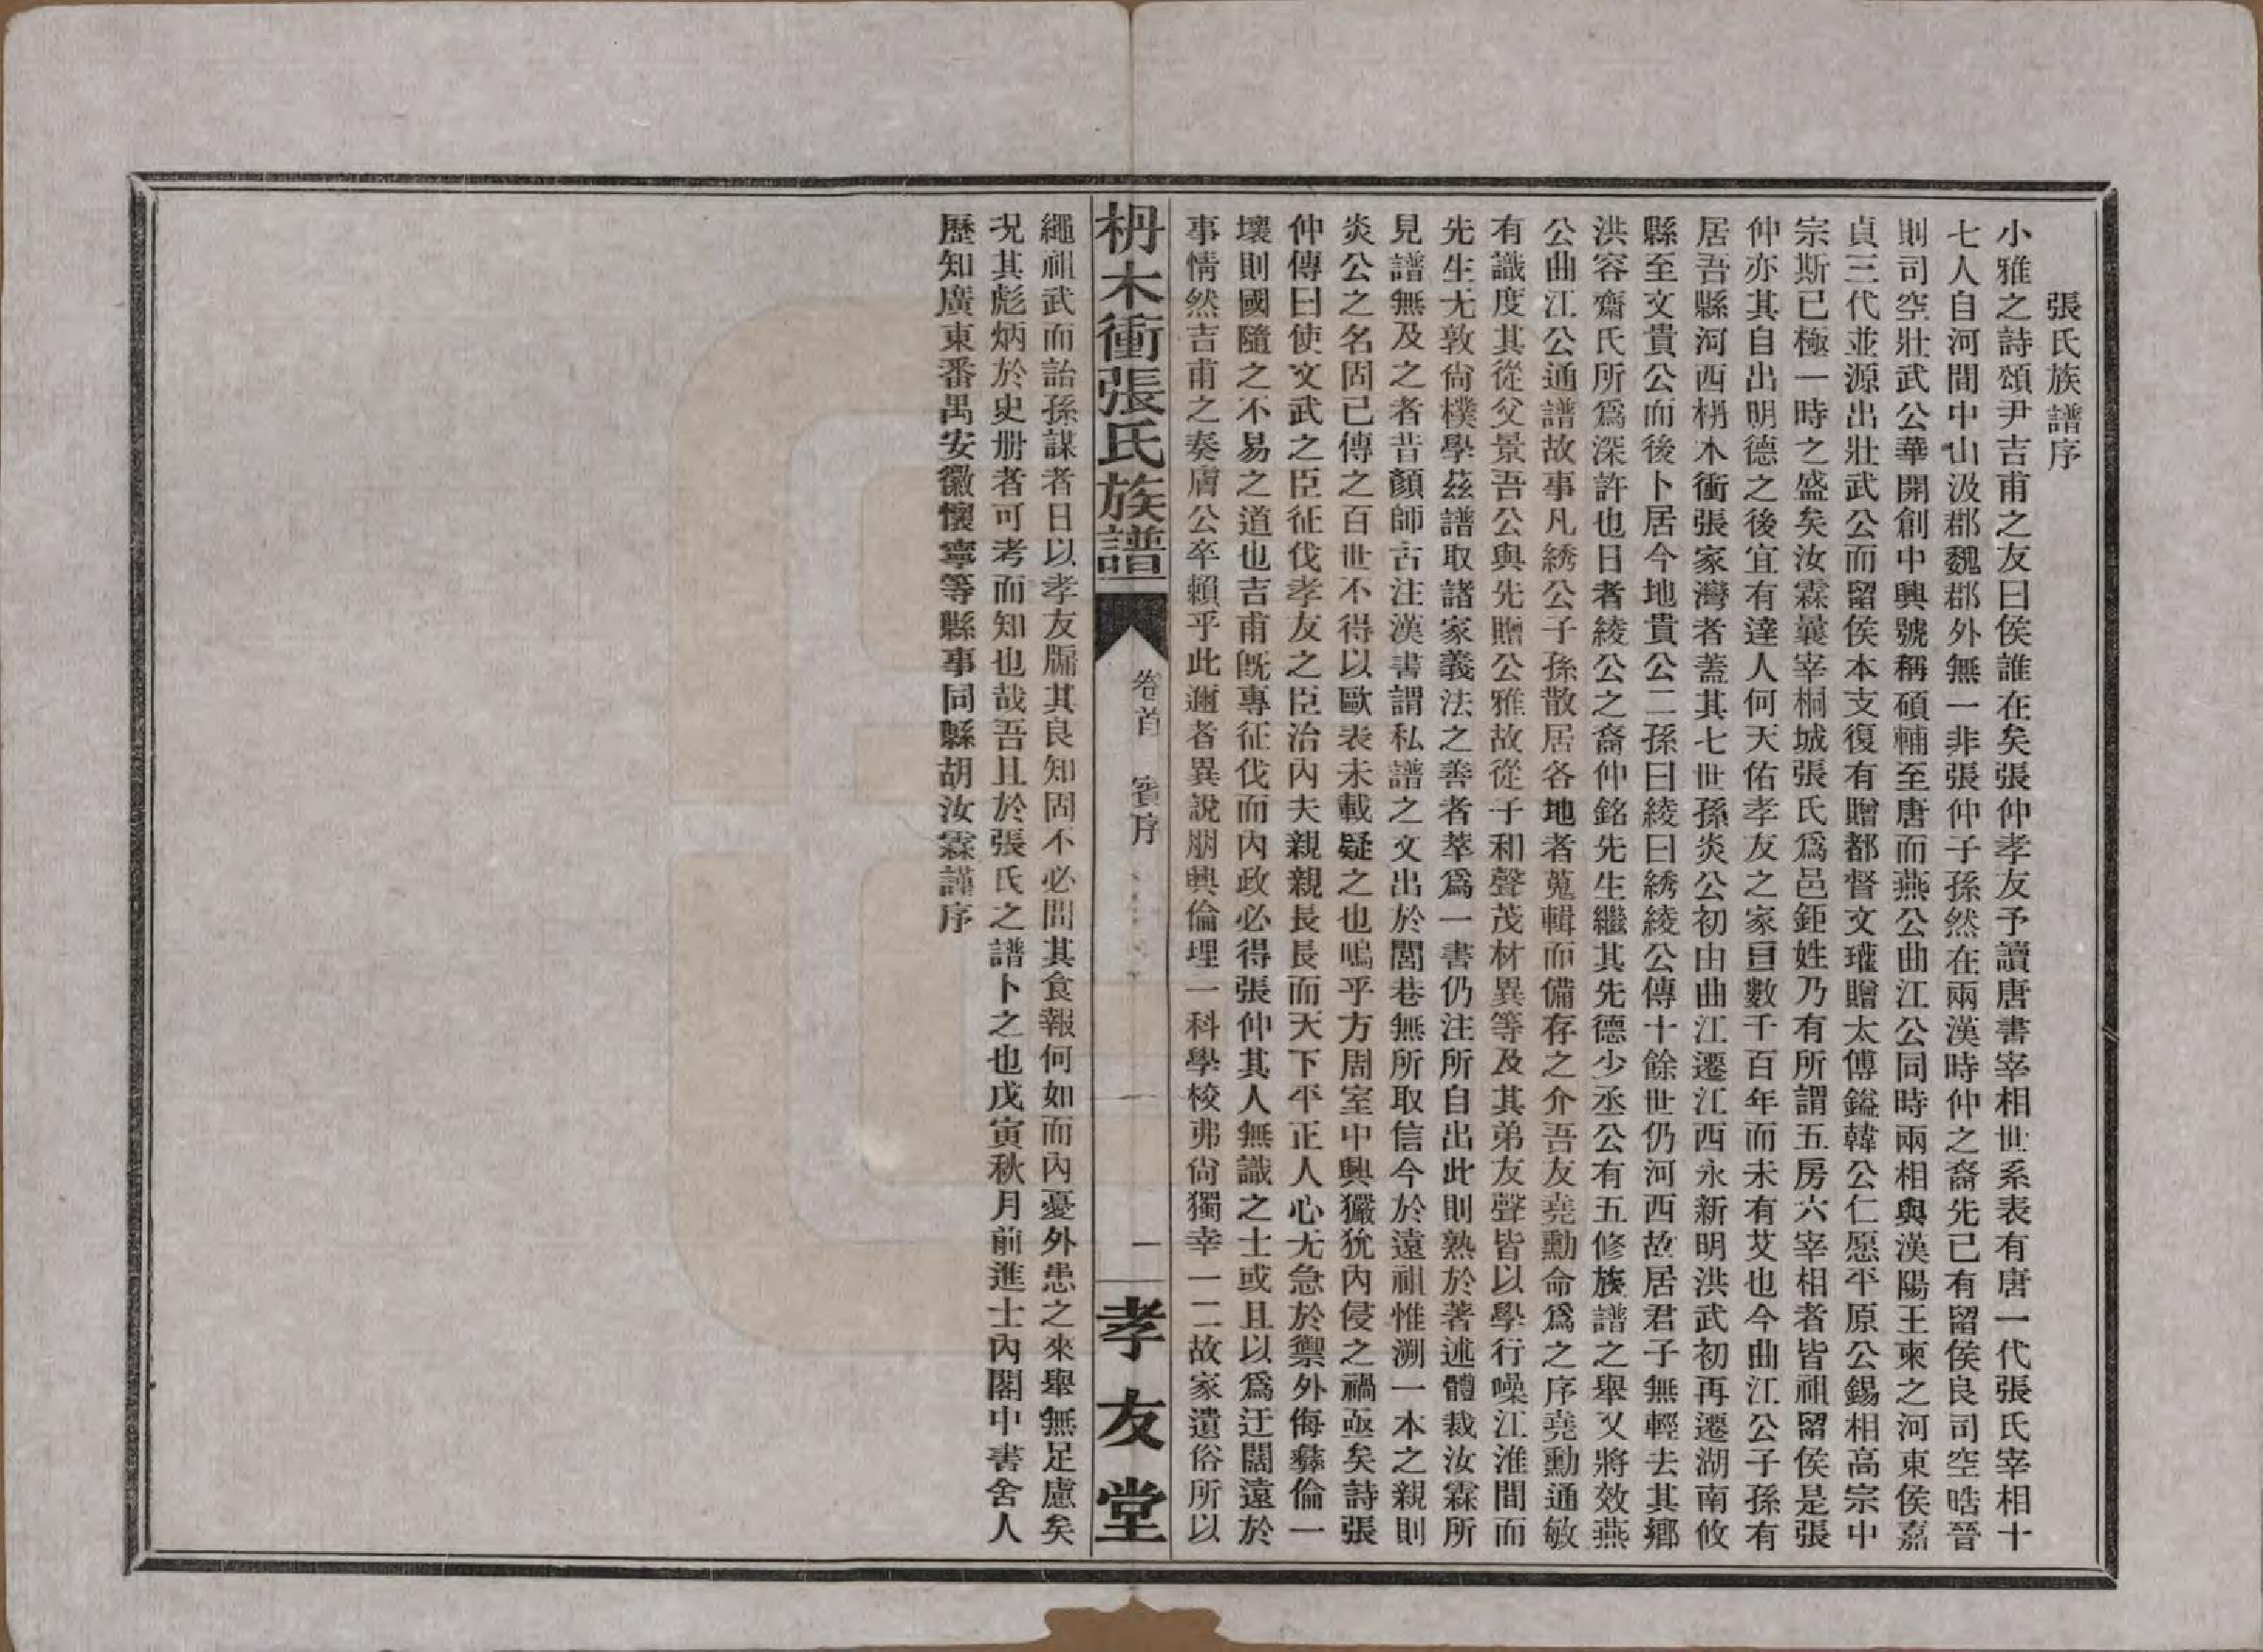 張氏族譜序
小雅之詩頌尹吉甫之友曰侯誰在矣張仲孝友予讀唐書宰相世系表有唐一代張氏宰相十
七人自河間中山汲郡魏郡外無一非張仲子孫然在兩漢時仲之裔先已有留侯良司空晧晉
則司空壯武公華開創中興號稱碩輔至唐而燕公曲江公同時兩相與漢陽王柬之河東侯嘉
貞三代並源出壯武公而留侯本支復有贈都督文瓘贈太傅鎰韓公仁愿平原公錫相高宗中
宗斯已極一時之盛矣汝霖曩宰桐城張氏爲邑鉅姓乃有所謂五房六宰相者皆祖留侯是張
仲亦其自出明德之後宜有達人何天佑孝友之家亘數千百年而未有艾也今曲江公子孫有
居吾縣河西枬木衝張家灣者蓋其七世孫炎公初由曲江遷江西永新明洪武初再遷湖南攸
縣至文貴公而後卜居今地貴公二孫曰綾曰綉綾公傳十餘世仍河西故居君子無輕去其鄉
洪容齋氏所爲深許也日者綾公之裔仲銘先生繼其先德少丞公有五修族譜之舉又將效燕
公曲江公通譜故事凡綉公子孫散居各地者蒐輯而備存之介吾友堯勳命爲之序堯勳通敏
有識度其從父景吾公與先贈公雅故從子和聲茂材異等及其弟友聲皆以學行噪江淮間而
先生尤敦尙樸學茲譜取諸家義法之善者萃爲一書仍注所自出此則熟於著述體裁汝霖所
見譜無及之者昔顏師古注漢書謂私譜之文出於閭巷無所取信今於遠祖惟溯一本之親則
炎公之名固已傳之百世不得以歐表未載疑之也嗚乎方周室中興玁狁內侵之禍亟矣詩張
仲傳曰使文武之臣征伐孝友之臣治內夫親親長長而天下平正人心尤急於禦外侮彝倫一
壞則國隨之不易之道也吉甫旣專征伐而內政必得張仲其人無識之士或且以爲迂闊遠於
事情然吉甫之奏膚公卒賴乎此邇者異說朋興倫理一科學校弗尙獨幸一二故家遺俗所以
枬木衝張氏族譜 卷首 賓序 一 孝友堂
繩祖武而詒孫謀者日以孝友牖其良知固不必問其食報何如而內憂外患之來舉無足慮矣
況其彪炳於史册者可考而知也哉吾且於張氏之譜卜之也戊寅秋月前進士內閣中書舍人
歷知廣東番禺安徽懷寧等縣事同縣胡汝霖謹序